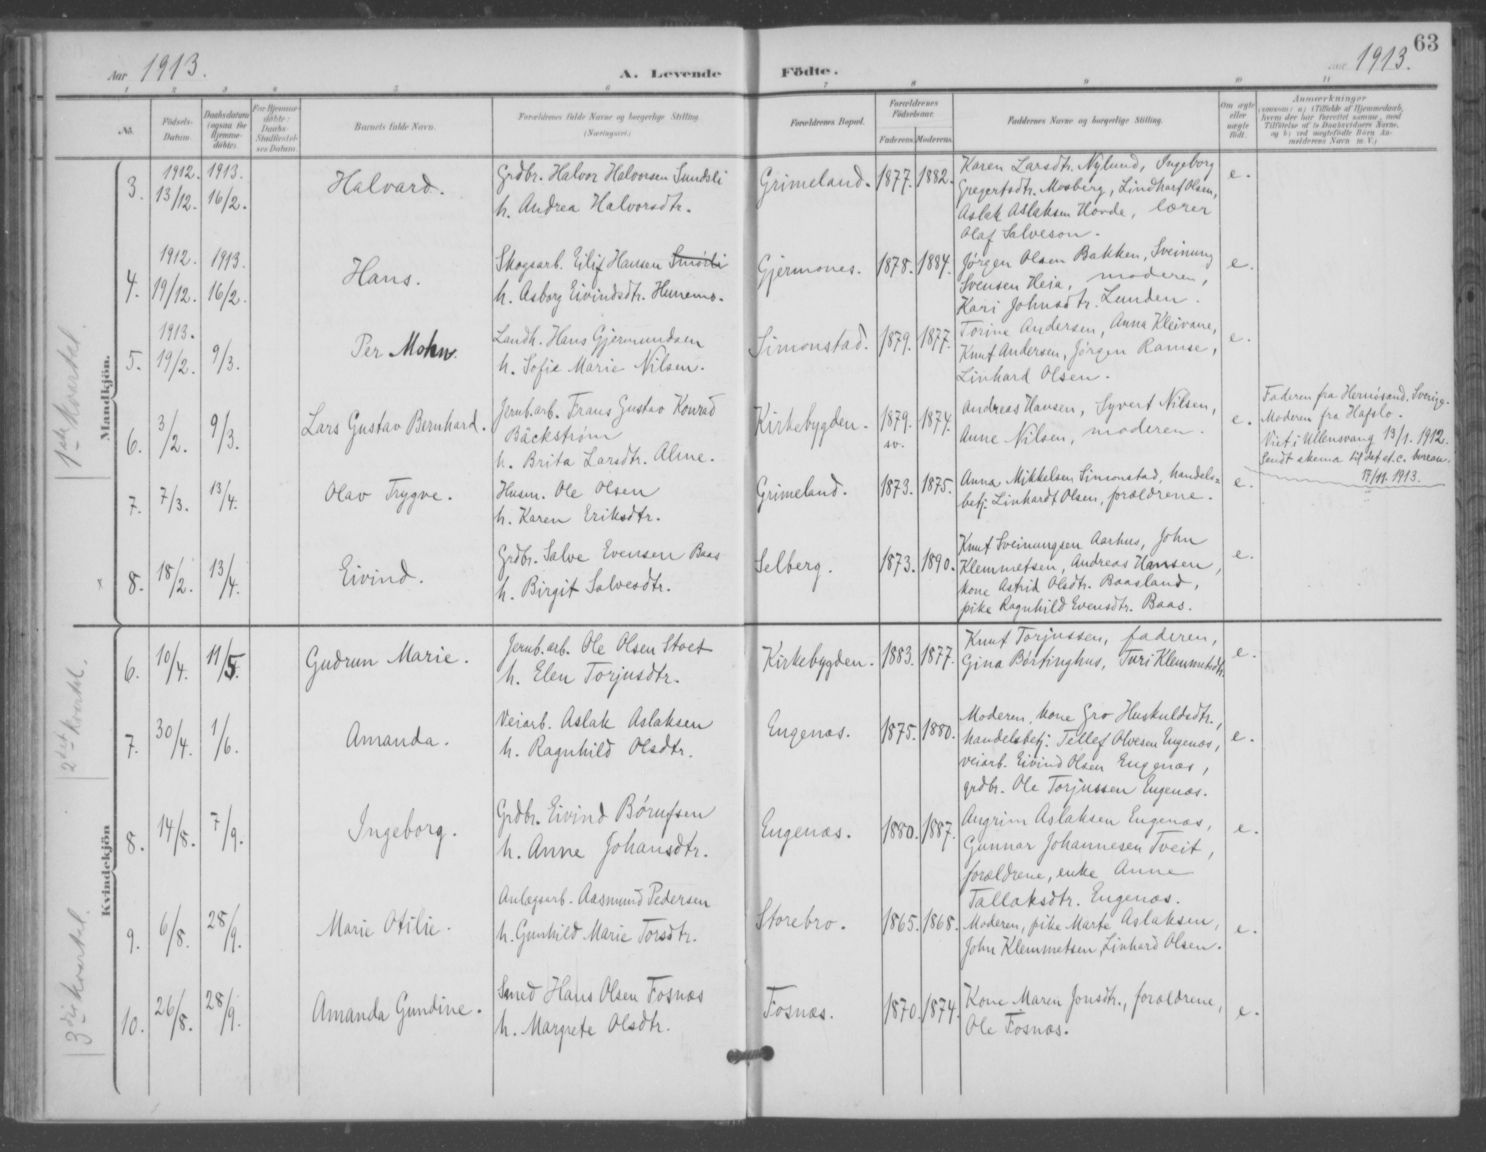 63
Aar 1913. A. Levende Födte. Aar 1913.
1 2 3 4 5 6 7 8 9 10 11
No. Födsels-Datum. Daabsdatum (ogsaa for Hjemmedöbte). For Hjemmedöbte: Daabs-Stadfæstelses Datum. Barnets fulde Navn. Forældrenes fulde Navne og borgerlige Stilling. (Næringsvei.) Forældrenes Bopæl. Forældrenes Födselsaar. Faderens. Moderens. Faddernes Navne og borgerlige Stilling. Om ægte eller uægte født. Anmærkninger
1ste kvartal.
Mandkjön.
3. 1912. 13/12. 1913. 16/2. Halvard.
Grdbr. Halvor Halvorsen Sundsli
h. Andrea Halvorsdtr.
Grimeland. 1877. 1882.
Karen Larsdtr. Nylund, Ingeborg
Gregertsdtr. Mosberg, Lindhart Olsen,
Aslak Aslaksen Hovde, lærer
Olaf Salveson.
e.
4. 1912. 19/12. 1913. 16/2. Hans.
Skogsarb. Eilif Hansen Smørli
h. Asborg Eivindsdtr. Hunemo.
Gjermones. 1878. 1884.
Jørgen Olsen Bakken, Sveinung
Svensen Heia, moderen,
Kari Johnsdtr. Lunden.
e.
5. 1913. 19/2. 9/3. Per Mohn.
Landh. Hans Gjermundsen
h. Sofie Marie Nilsen.
Simonstad. 1879. 1877.
Torine Andersen, Anna Kleivane,
Knut Andersen, Jörgen Ramse,
Linhard Olsen.
e.
6. 3/2. 9/3. Lars Gustav Bernhard.
Jernb.arb. Frans Gustav Konrad
Bäckström
h. Brita Larsdtr. Alme.
Kirkebygden. 1879. sv. 1874.
Andreas Hansen, Syvert Nilsen,
Anne Nilsen, moderen.
e.
Faderen fra Hernösand. Sverige.
Moderen fra Hafslo.
Viet i Ullensvang 13/1. 1912.
Sendt skema til det st. c. bureau.
17/11. 1913.
7. 7/3. 13/4. Olav Trygve.
Husm. Ole Olsen
h. Karen Eriksdtr.
Grimeland. 1873. 1875.
Anna Mikkelsen Simonstad, handels-
betj. Linhardt Olsen, forældrene.
e.
8. 18/2. 13/4. Eivind.
Grdbr. Salve Evensen Baas
h. Birgit Salvesdtr.
Selberg. 1873. 1890.
Knut Sveinungsen Aarhus, John
Klemmetsen, Andreas Hansen,
kone Astrid Olsdtr. Baasland,
pike Ragnhild Evensdtr. Baas.
e.
2det kvartal.
Kvindekjön
6. 10/4. 11/5. Gudrun Marie.
Jernb. arb. Ole Olsen Stoet
h. Elen Torjusdtr.
Kirkebygden. 1883. 1877.
Knut Torjussen, faderen,
Gina Börtinghus, Turi Klemmetsdtr.
e.
7. 30/4. 1/6. Amanda.
Veiarb. Aslak Aslaksen
h. Ragnhild Olsdtr.
Engenæs. 1875. 1880.
Moderen, kone Gro Huskuldsdtr.,
handelsbetj. Tellef Olvesen Engenæs,
veiarb. Eivind Olsen Engenæs,
grdbr. Ole Torjussen Engenæs.
e.
8. 14/8. 7/9. Ingeborg.
Grdbr. Eivind Börufsen
h. Anne Johansdtr.
Engenæs. 1880. 1887.
Angrim Aslaksen Engenæs,
Gunnar Johannesen Tveit,
forældrene, enke Anne
Tallaksdtr. Engenæs.
e.
3die kvartal.
9. 6/8. 28/9. Marie Otilie.
Anlægsarb. Aasmund Pedersen
h. Gunhild Marie Torsdtr.
Storebro. 1865. 1868.
Moderen, pike Marte Aslaksen,
John Klemmetsen, Linhard Olsen.
e.
10. 26/8. 28/9. Amanda Gundine.
Smed Hans Olsen Fosnæs
h. Margrete Olsdtr.
Fosnæs. 1870. 1874.
Kone Maren Jonsdtr., forældrene,
Ole Fosnæs.
e.